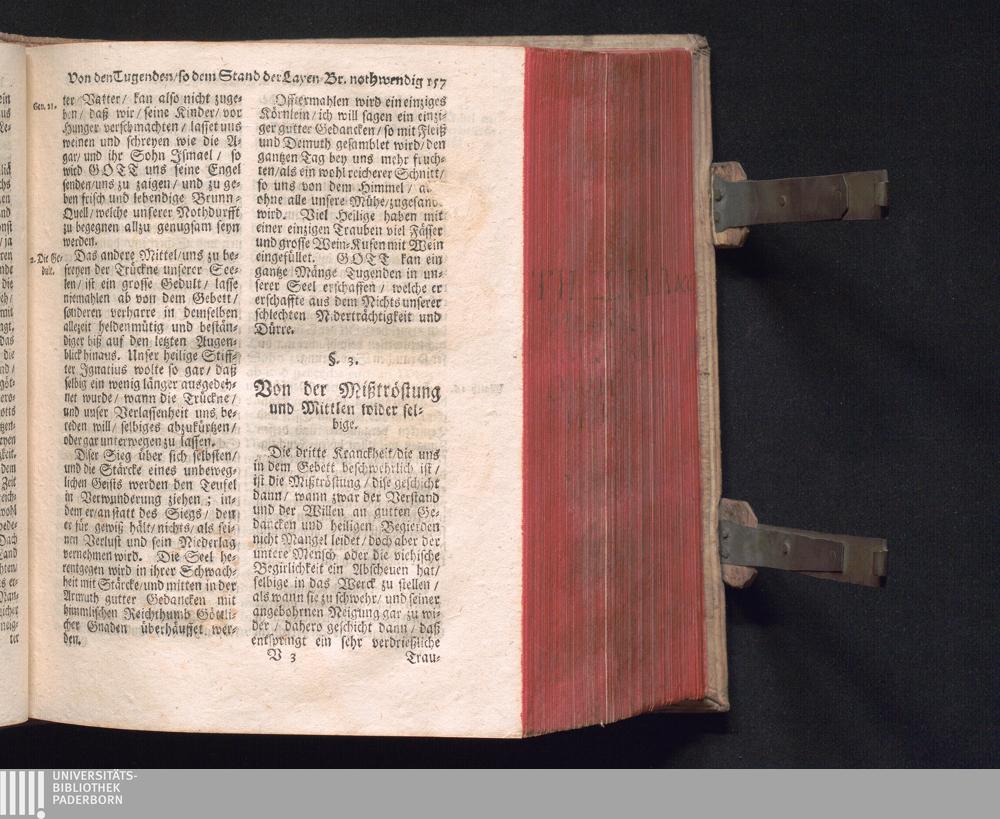 Von den Tugenden/ so dem Stand der Layen Br. nothwendig 157
Gen. 21.
ter/ Vatter/ kan also nicht zuge-
ben/ daß wir/ seine Kinder/ vor
Hunger verschmachten/ lasset uns
weinen und schreyen wie die A-
gar/ und ihr Sohn Ismael/ so
wird GOTT uns seine Engel
senden/ uns zu zaigen/ und zu ge-
ben frisch und lebendige Brunn-
Quell/ welche unserer Nothdurfft
zu begegnen allzu genugsam seyn
werden.
2. Die Ge-
dult.
Das andere Mittel/ uns zu be-
freyen der Trückne unserer See-
len/ ist ein grosse Gedult/ lasse
niemahlen ab von dem Gebett/
sonderen verharre in demselben
allezeit heldenmütig und bestän-
diger biß auf den letzten Augen-
blick hinaus. Unser heilige Stiff-
ter Ignatius wolte so gar/ daß
selbig ein wenig länger ausgedeh-
net wurde/ wann die Trückne/
und unser Verlassenheit uns be-
reden will/ selbiges abzukürtzen/
oder gar unterwegen zu lassen.
Diser Sieg über sich selbsten/
und die Stärcke eines unbeweg-
lichen Geists werden den Teufel
in Verwunderung ziehen; in-
dem er/ an statt des Siegs/ den
er für gewiß hält/ nichts/ als sei-
nen Verlust und sein Niederlag
vernehmen wird. Die Seel he-
rentgegen wird in ihrer Schwach-
heit mit Stärcke/ und mitten in der
Armuth gutter Gedancken mit
himmlischen Reichthumb Göttli-
cher Gnaden überhäuffet wer-
den.
Offtermahlen wird ein einziges
Körnlein/ ich will sagen ein einzi-
ger gutter Gedancken/ so mit Fleiß
und Demuth gesamblet wird/ den
gantzen Tag bey uns mehr fruch-
ten/ als ein wohl reicherer Schnitt/
so uns von dem Himmel/
ohne alle unsere Mühe/
wird. Viel Heilige haben mit
einer einzigen Trauben viel Fässer
und grosse Wein-Kufen mit Wein
eingefüllet. GOTT kan ein
gantze Mänge Tugenden in un-
serer Seel erschaffen/ welche er
erschaffte aus dem Nichts unserer
schlechten Niderträchtigkeit und
Dürre.
§. 3.
Von der Mißtröstung
und Mittlen wider sel-
bige.
Die dritte Kranckheit/ die uns
in dem Gebett beschwehrlich ist/
ist die Mißtröstung/ dise geschicht
dann/ wann zwar der Verstand
und der Willen an gutten Ge-
dancken und heiligen Begierden
nicht Mangel leidet/ doch aber der
untere Mensch oder die viehische
Begirlichkeit ein Abscheuen hat/
selbige in das Werck zu stellen/
als wann sie zu schwehr/ und seiner
angebohrnen Neigung gar zu wi-
der/ dahero geschicht dann/ daß
entspringt ein sehr verdrießliche
V 3 Trau-
UNIVERSITÄTS-
BIBLIOTHEK
PADERBORN